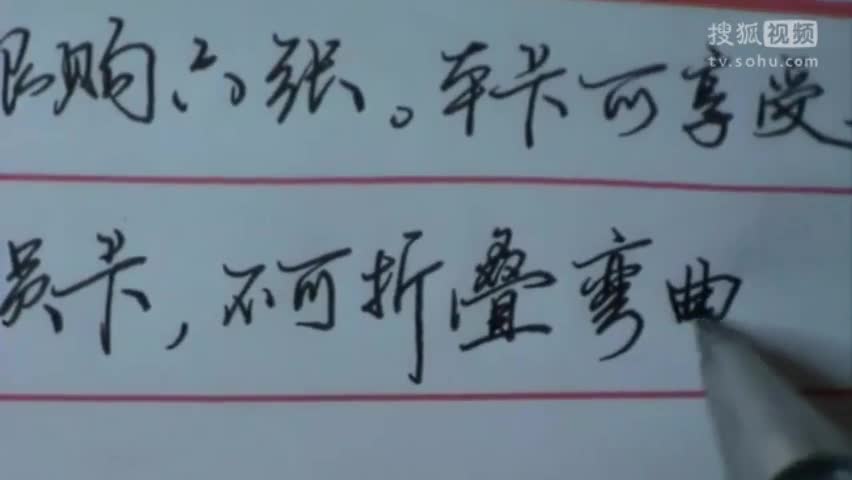 搜狐视频
tv.sohu.com
购六张。本卡可享受
员卡,不可折叠弯曲